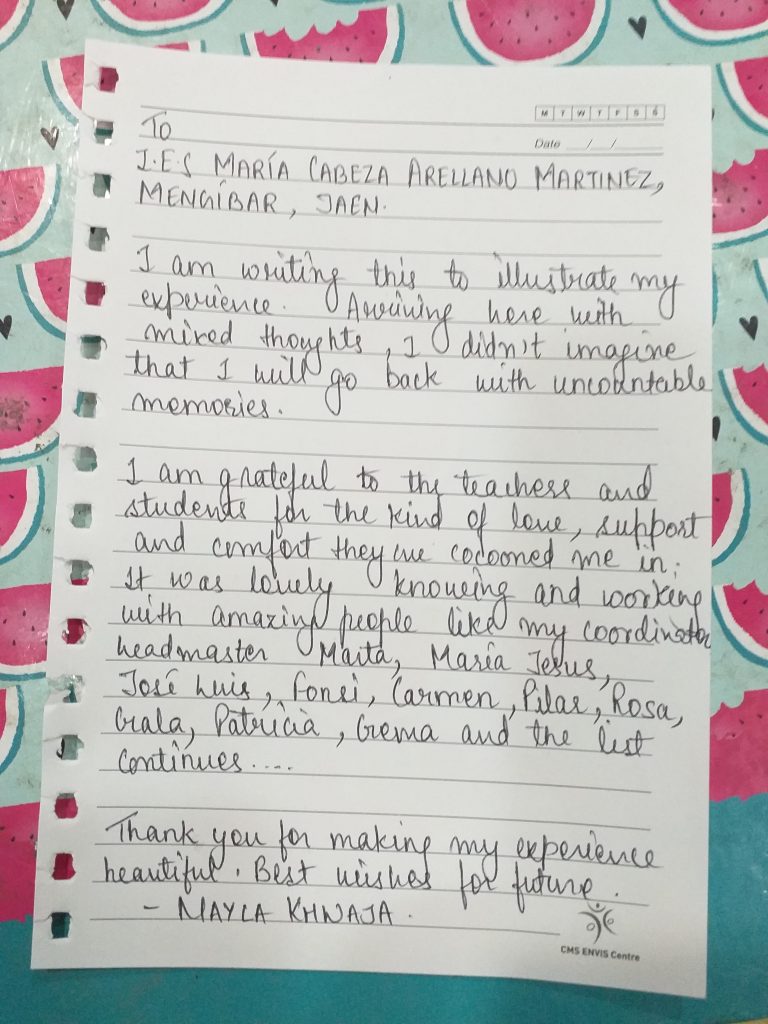 M T W T F S S
To
Date / /
I.E.S MARÍA CABEZA ARELLANO MARTINEZ,
MENGÍBAR, JAEN.
I am writing this to illustrate my
experience. Arriving here with
mixed thoughts, I didn't imagine
that I will go back with uncountable
memories.
I am grateful to the teachers and
students for the kind of love, support
and comfort they've cocooned me in.
It was lovely knowing and working
with amazing people like my coordinator
headmaster Marta, María Jesus,
José Luis, Fonsi, Carmen, Pilar, Rosa,
Gala, Patricia, Gema and the list
continues....
Thank you for making my experience
beautiful. Best wishes for future.
- NAYLA KHWAJA.
CMS ENVIS Centre